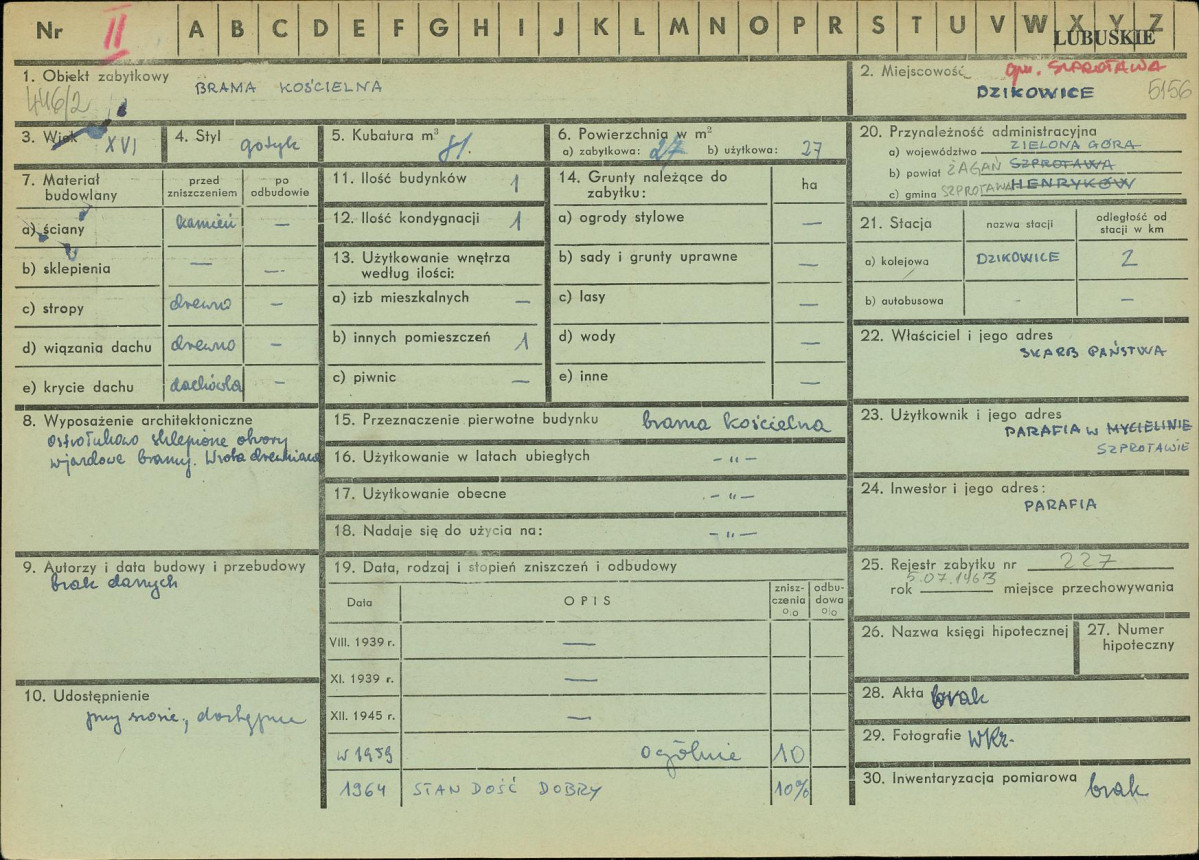 Nr II A B C D E F G H I J K L M N O P R S T U V W X Y Z
LUBUSKIE
1. Obiekt zabytkowy
446/2
BRAMA KOŚCIELNA
2. Miejscowość gm. SZPROTAWA
DZIKOWICE 5156
3. Wiek XVI
4. Styl gotyk
5. Kubatura m³ 81.
6. Powierzchnia w m²
a) zabytkowa: 27 b) użytkowa: 27
7. Materiał budowlany
przed zniszczeniem
po odbudowie
a) ściany kamień —
b) sklepienia — —
c) stropy drewno —
d) wiązania dachu drewno —
e) krycie dachu dachówka —
8. Wyposażenie architektoniczne
ostrołukowo sklepione otwory
wjazdowe bramy. Wrota drewniane
9. Autorzy i data budowy i przebudowy
brak danych
10. Udostępnienie
przy szosie, dostępne
11. Ilość budynków 1
12. Ilość kondygnacji 1
13. Użytkowanie wnętrza
według ilości:
a) izb mieszkalnych —
b) innych pomieszczeń 1
c) piwnic —
14. Grunty należące do
zabytku:
ha
a) ogrody stylowe —
b) sady i grunty uprawne —
c) lasy —
d) wody —
e) inne —
15. Przeznaczenie pierwotne budynku brama kościelna
16. Użytkowanie w latach ubiegłych – „ –
17. Użytkowanie obecne – „ –
18. Nadaje się do użycia na: – „ –
19. Data, rodzaj i stopień zniszczeń i odbudowy
Data
OPIS
znisz-
czenia
%
odbu-
dowa
%
VIII. 1939 r. —
XI. 1939 r. —
XII. 1945 r. —
w 1959 ogólnie 10
1964 STAN DOŚĆ DOBRY 10%
20. Przynależność administracyjna
a) województwo ZIELONA GÓRA
b) powiat ŻAGAŃ SZPROTAWA
c) gmina SZPROTAWA HENRYKÓW
21. Stacja
nazwa stacji
odległość od
stacji w km
a) kolejowa DZIKOWICE 2
b) autobusowa - —
22. Właściciel i jego adres
SKARB PAŃSTWA
23. Użytkownik i jego adres
PARAFIA W MYCIELINIE
SZPROTAWIE
24. Inwestor i jego adres:
PARAFIA
25. Rejestr zabytku nr 227
5.07.1963
rok miejsce przechowywania
26. Nazwa księgi hipotecznej
27. Numer
hipoteczny
28. Akta brak
29. Fotografie WKZ-
30. Inwentaryzacja pomiarowa brak